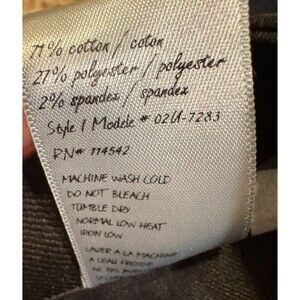 71% cotton / coton
27% polyester / polyester
2% spandex / spandex
Style / Modele # 02U-7283
RN# 114542
MACHINE WASH COLD
DO NOT BLEACH
TUMBLE DRY
NORMAL LOW HEAT
IRON LOW
LAVER A LA MACHINE
A L'EAU FROIDE
NE PAS